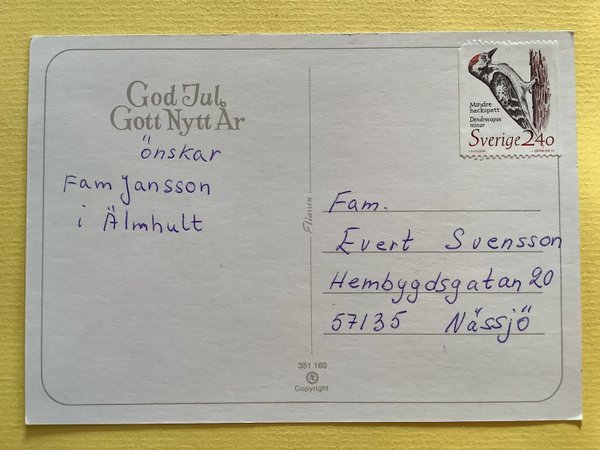 God Jul
Gott Nytt År
önskar
Fam Jansson
i Älmhult
Mindre
hackspett
Dendrocopos
minor
Sverige 240
Fam.
Evert Svensson
Hembygdsgatan 20
57135 Nässjö
351 160
Copyright